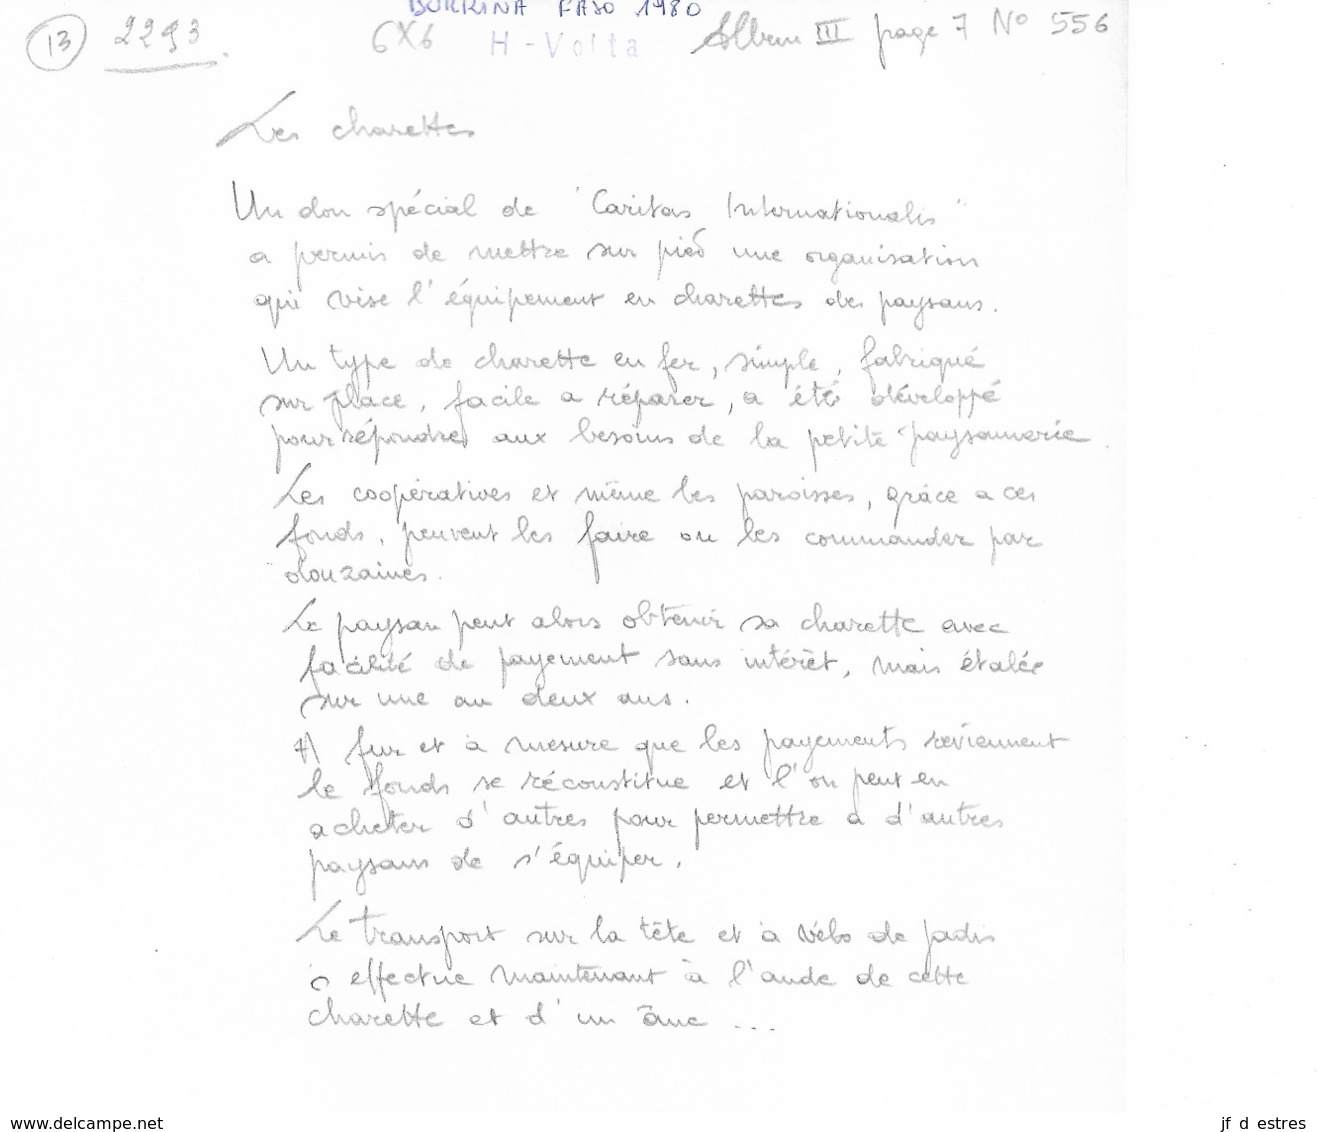 BURKINA FASO 1980
13 2293 6X6 H-Volta Album III page 7 N° 556
Les charettes
Un don spécial de "Caritas Internationalis"
a permis de mettre sur pied une organisation
qui vise l'équipement en charettes des paysans.
Un type de charette en fer, simple, fabriqué
sur place, facile a réparer, a été développé
pour répondre aux besoins de la petite paysannerie
Les coopératives et même les paroisses, grâce a ces
fonds, peuvent les faire ou les commander par
douzaines.
Le paysan peut alors obtenir sa charette avec
facilité de payement sans intérèt, mais étalée
sur une ou deux ans.
A fur et à mesure que les payements reviennent
le fonds se réconstitue et l'on peut en
acheter d'autres pour permettre a d'autres
paysans de s'équiper.
Le transport sur la tête et à vélo de jadis
s effectue maintenant à l'aide de cette
charette et d'un âne ...
www.delcampe.net jf d estres